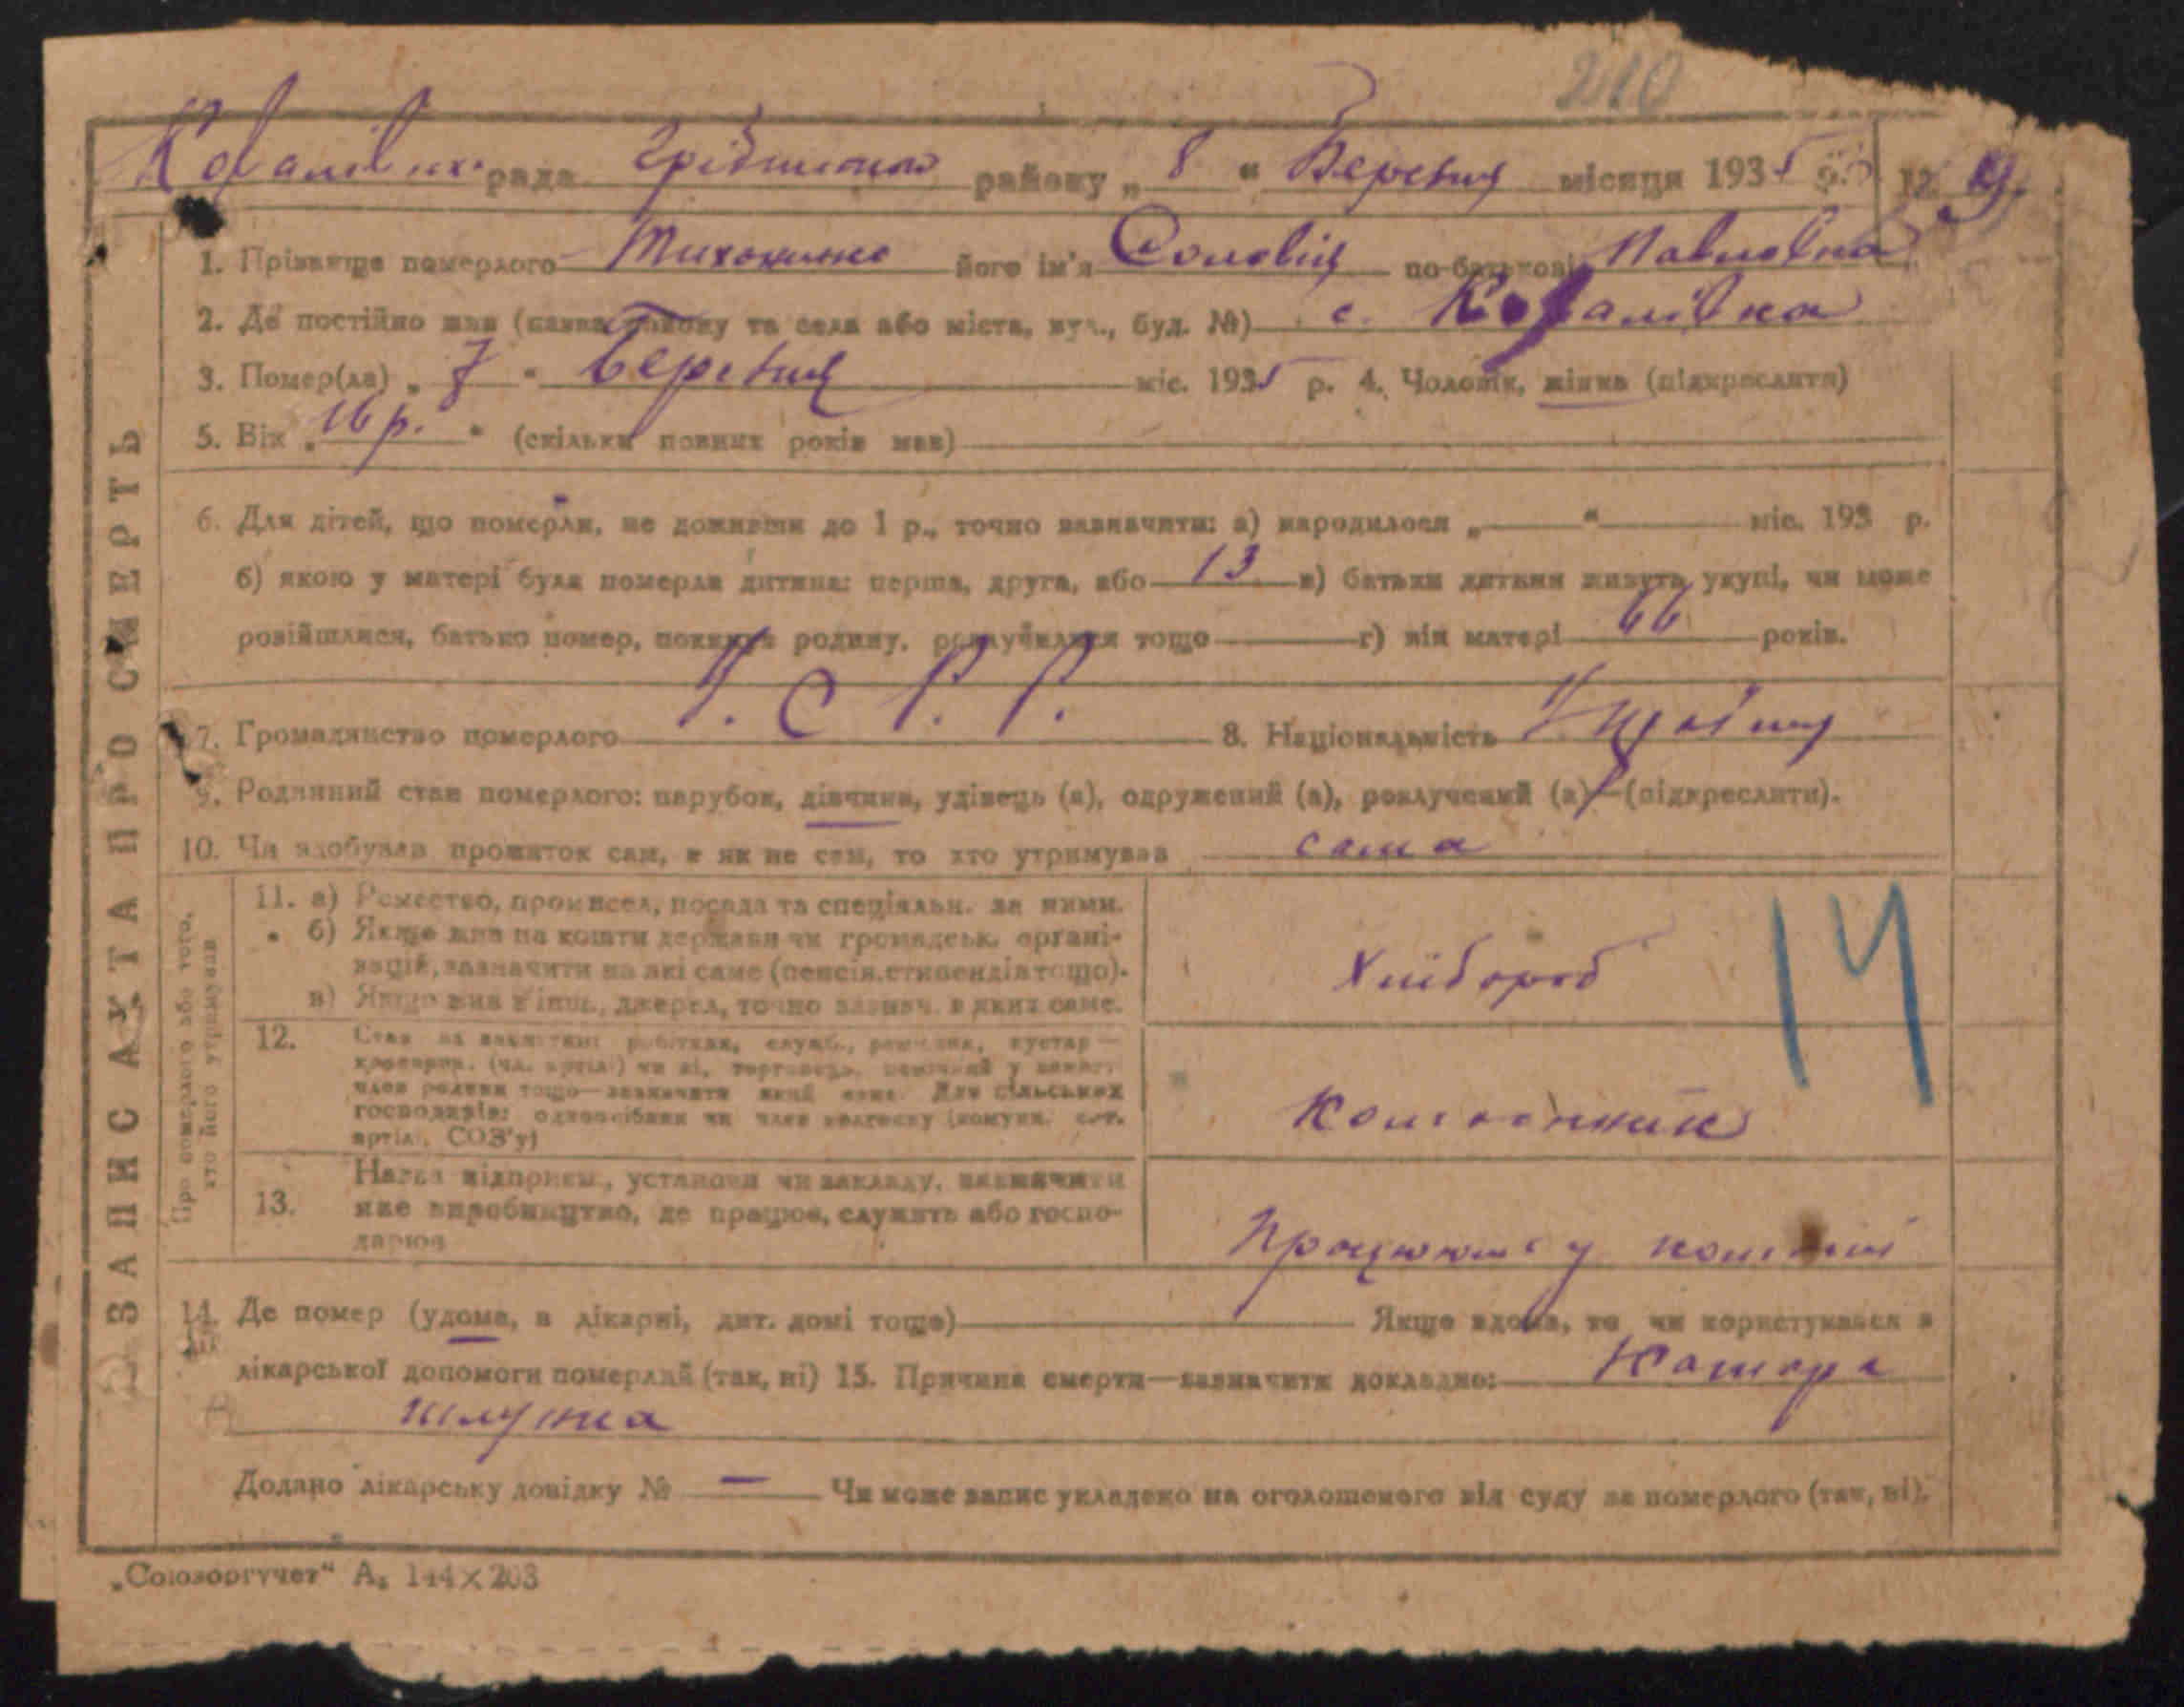 210
Ковалівська рада Грішинськ району „ 8 “ Березня місяця 1935 р. № 19
1. Прізвище померлого Тихоненко його ім'я Соловія по-батькові Павловна
2. Де постійно жив (назва району та села або міста, вул., буд. №) с. Ковалівка
3. Помер(ла) „ 7 “ березня міс. 1935 р. 4. Чоловік, жінка (підкреслити)
5. Вік „ 16 р. “ (скільки повних років мав)
6. Для дітей, що померли, не доживши до 1 р., точно зазначити: а) народилося „ “ міс. 193 р.
б) якою у матері була померла дитина: перша, друга, або 13 в) батьки дитини живуть укупі, чи може
розійшлися, батько помер, покинув родину, розлучилися тощо г) вік матері 66 років.
7. Громадянство померлого У. С. Р. Р. 8. Національність
9. Родинний стан померлого: парубок, дівчина, удівець (а), одружений (а), розлучений (а) — (підкреслити).
10. Чи здобував прожиток сам, а як не сам, то хто утримував сама
ЗАПИС АКТА ПРО СМЕРТЬ
Про померлого або того,
хто його утримував
11. а) Ремество, промисел, посада та спеціяльн. за ними.
б) Якщо жив на кошти держави чи громадськ. органі-
зацій, зазначити на які саме (пенсія, стипендія тощо).
в) Якщо жив з інш. джерел, точно зазнач. з яких саме.
Хлібороб
14
12. Стан за занятт.: робітник, служб.,
член родини тощо—зазначити який саме. Для сільських
господарів: одноосібник чи член колгоспу (комуни, с.-г.
артілі, СОЗ'у)
Колгоспник
13. Назва підприєм., установи чи закладу, зазначити
яке виробництво, де працює, служить або госпо-
дарює
Працювала у колгоспі
14. Де помер (удома, в лікарні, дит. домі тощо) Якщо вдома, то чи користувався з
лікарської допомоги померлий (так, ні) 15. Причина смерти—зазначити докладно: Катара
шлунка
Додано лікарську довідку № — Чи може запис укладено на оголошеного від суду за померлого (так, ні).
„Союзоргучет“ А₅ 144×203